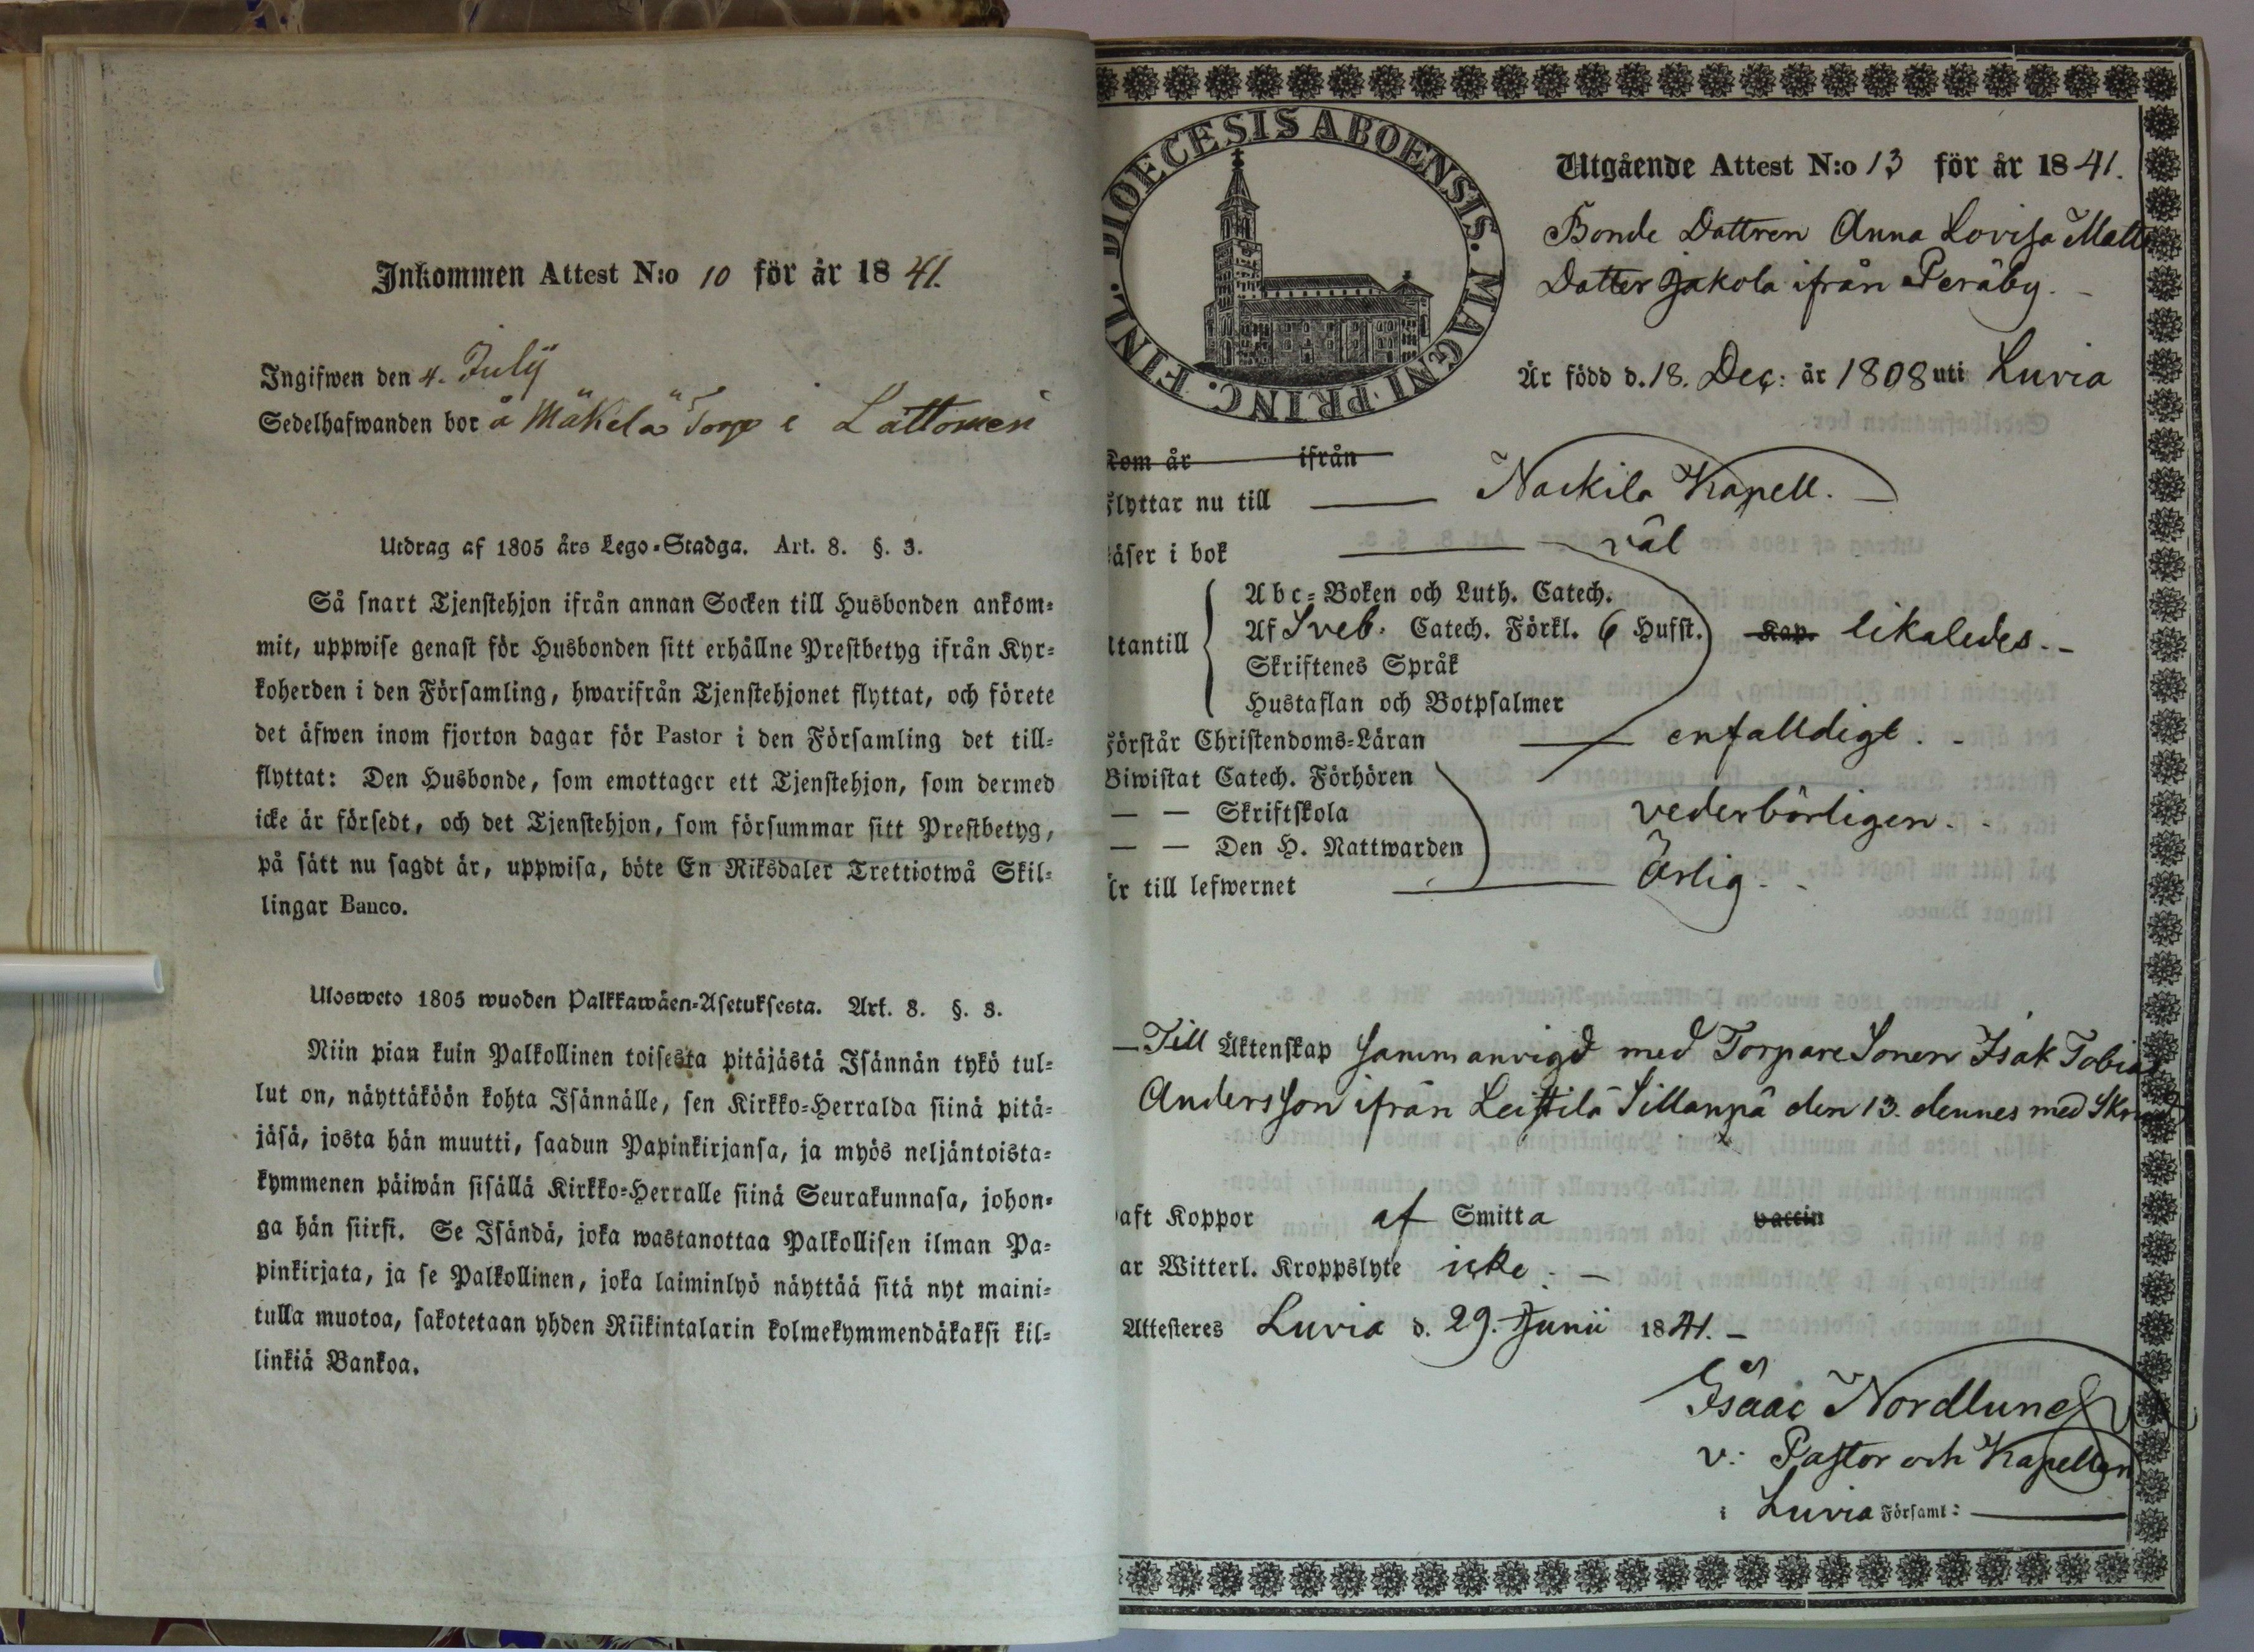 Inkommen Attest N:o 10 för år 1841.
Ingifwen den 4. Julÿ
Sedelhafwanden bor å Mäkelä Torp i Lattomeri
Utdrag af 1805 års Lego-Stadga. Art. 8. §. 3.
Så snart Tjenstehjon ifrån annan Socken till Husbonden ankom-
mit, uppwise genast för Husbonden sitt erhållne Prestbetyg ifrån Kyr-
koherden i den Församling, hwarifrån Tjenstehjonet flyttat, och förete
det äfwen inom fjorton dagar för Pastor i den Församling det till-
flyttat: Den Husbonde, som emottager ett Tjenstehjon, som dermed
icke är försedt, och det Tjenstehjon, som försummar sitt Prestbetyg,
på sätt nu sagdt är, uppwisa, böte En Riksdaler Trettiotwå Skil-
lingar Banco.
Ulosweto 1805 wuoden Palkkawäen-Asetuksesta. Art. 8. §. 3.
Niin pian kuin Palkollinen toisesta pitäjästä Isännän tykö tul-
lut on, näyttäköön kohta Isännälle, sen Kirkko-Herralda siinä pitä-
jäsä, josta hän muutti, saadun Papinkirjansa, ja myös neljäntoista-
kymmenen päiwän sisällä Kirkko-Herralle siinä Seurakunnasa, johon-
ga hän siirsi. Se Isändä, joka wastanottaa Palkollisen ilman Pa-
pinkirjata, ja se Palkollinen, joka laiminlyö näyttää sitä nyt maini-
tulla muotoa, sakotetaan yhden Riikintalarin kolmekymmendäkaksi kil-
linkiä Bankoa.
DIOECESIS ABOENSIS. MAGNI PRINC. FINL.
Utgående Attest N:o 13 för år 1841.
Bonde Dattren Anna Lovisa Matts
Datter Jakola ifrån Peräby. -
Är född d. 18. Dec: år 1808 uti Luvia
Kom år ifrån
flyttar nu till Nackila Kapell. -
äser i bok väl
Abc-Boken och Luth. Catech.
tantill Af Sveb. Catech. Förkl. 6 Hufst. Kap. likaledes. -
Skriftenes Språk
Hustaflan och Botpsalmer
Förstår Christendoms-Läran enfalldigt. -
Biwistat Catech. Förhören
— — Skriftskola vederbörligen. -
— — Den H. Nattwarden
är till lefwernet Ärlig. -
— Till Äktenskap sammanvigd med Torpare Sonen Isak Tobias
Andersson ifrån Leistilä Sillanpä den 13. dennes med
aft Koppor af Smitta vaccin
ar Witterl. Kroppslyte icke. -
Attesteres Luvia d. 29. Junii 1841. -
Isaac Nordlund
v: Pastor och Kapellan
i Luvia Församl: